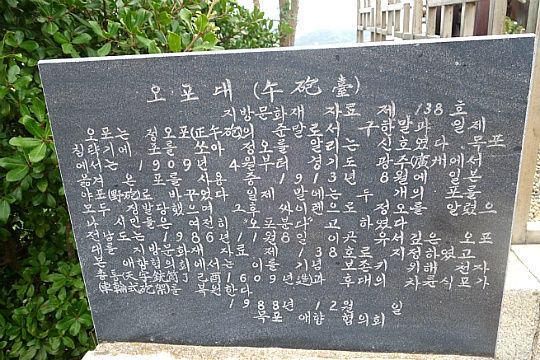 오포대 (午砲臺)
지방문화재 자료 제 138 호
오포는 정오포(正午砲)의 준말로서 구한말과 일제
침략기에 포를 쏘아 정오를 알리는 신호였다. 목포
에서는 1909년 4월부터 경기도 광주(廣州)에서
옮겨온 포를 사용 중 1913년 8월에 일본
야포(野砲)로 바꾸었다 일제 말에는 두 개의 포를
모두 징발당했으며 그후 싸이렌으로 정오를 알렸으
나 시민들은 여전히 "오포분다"고 하였다
전남도는 1986년 11월8일 이곳 유서깊은 오포
대를 지방문화재 자료 제 138호로 지정하였고
본 애향협회에서는 이를 기념 보존키 위해 천자
총통(天字銃筒) 己酉1609년造)과 후대의 차륜식포가
(車輪式砲閣)를 복원한다
1988년 12월 일
목포 애향 협의회